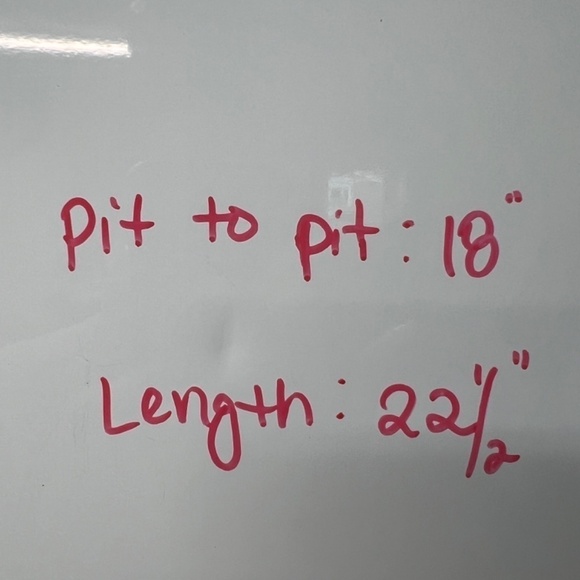 Pit to pit: 18"
Length: 22 1/2"